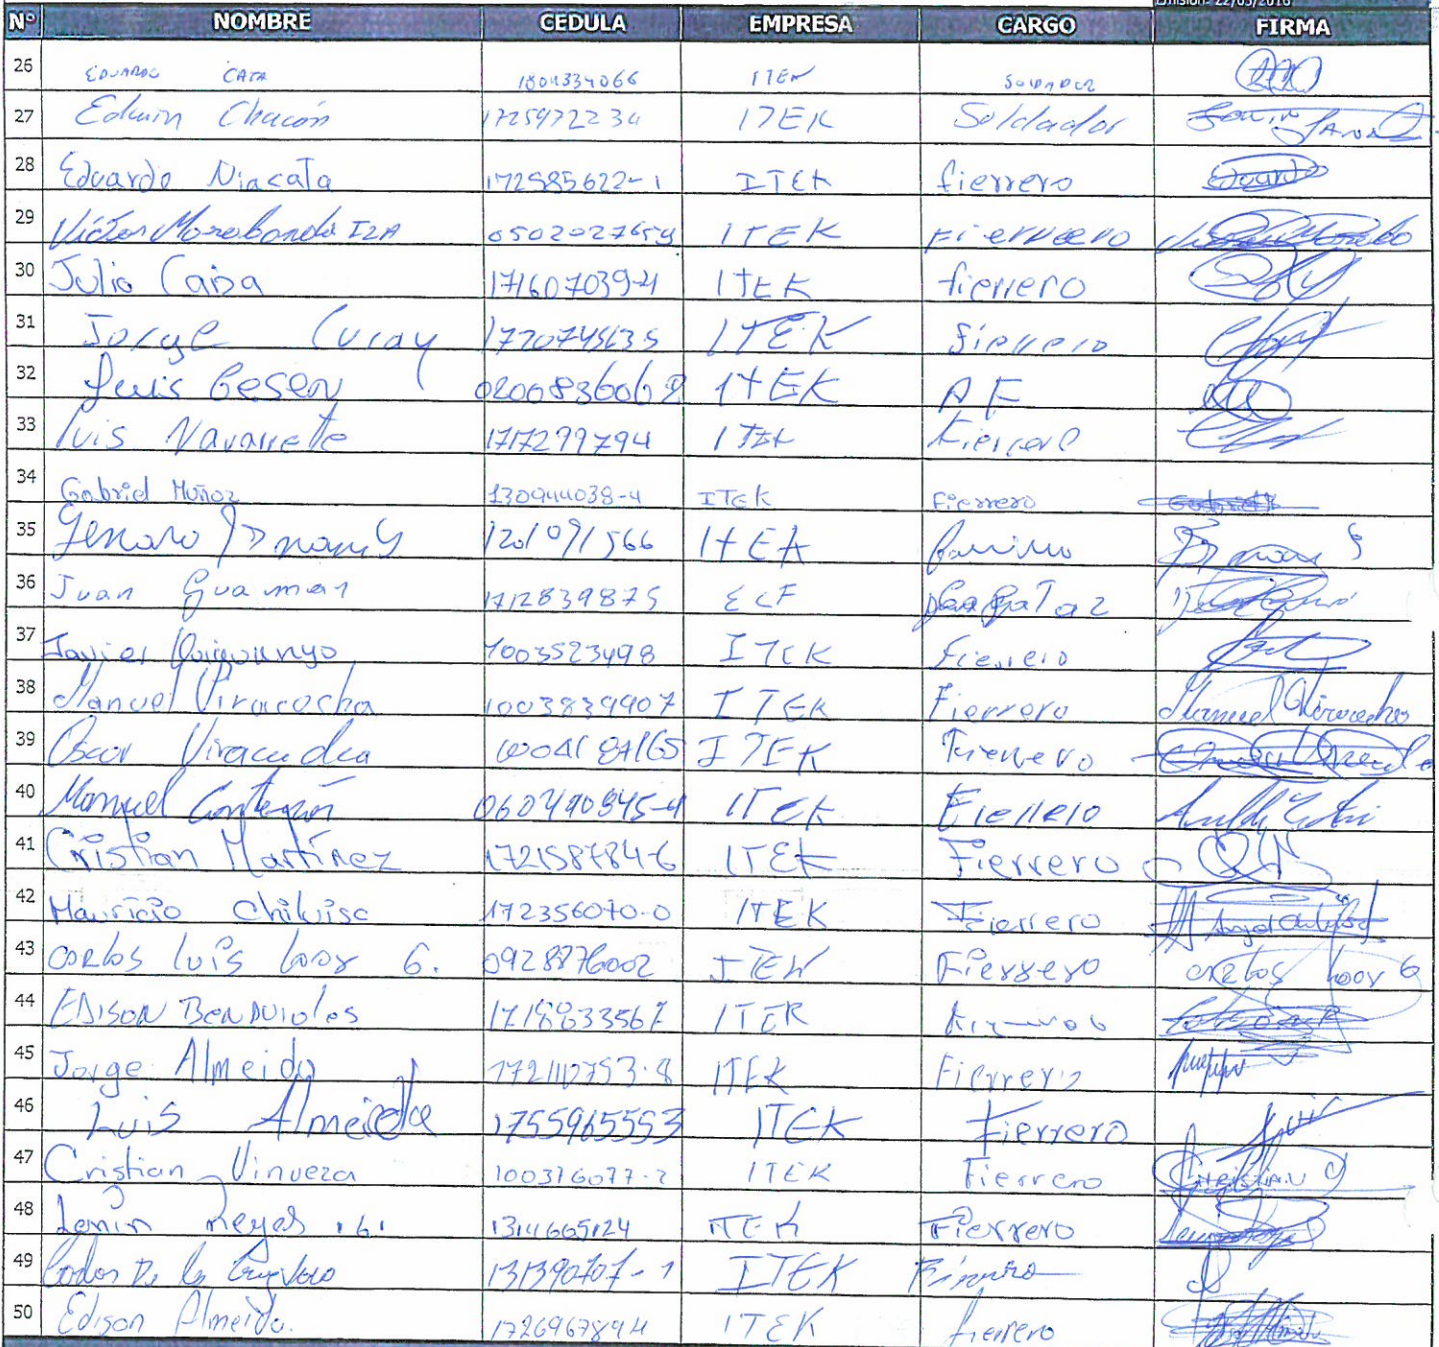 Emisión: 22/03/2016
N° NOMBRE CEDULA EMPRESA CARGO FIRMA
26 EDUARDO CATA 1804334066 ITEK SOLDADOR
27 Edwin Chacón 1725972234 ITEK Soldador
28 Eduardo Niacata 172585622-1 ITEK fierrero Eduardo
29 Victor Morobanda IZA 0502027654 ITEK Fierrero
30 Julio Caisa 171607039-4 ITEK fierrero
31 Jorge Curay 1720745635 ITEK fierrero
32 Luis 0200836068 ITEK A F
33 Luis Navarrete 1717299794 ITEK fierrero
34 Gabriel Muñoz 130944038-4 ITEK Fierrero Gabriel
35 Genaro 1201091566 ITEK
36 Juan Guaman 1712839875 ECF
37 Javier 1003523498 ITEK fierrero
38 Manuel Viracocha 1003839907 ITEK Fierrero Manuel Viracocha
39 Oscar Viracocha 1004187165 ITEK Fierrero
40 Manuel 060490845-4 ITEK Fierrero
41 Cristian Martínez 172158784-6 ITEK Fierrero
42 Mauricio Chiluisa 172356070-0 ITEK Fierrero
43 Carlos Luis Loor G. 0928876002 ITEK Fierrero Carlos Loor G
44 EDISON 1718833567 ITEK
45 Jorge Almeida 172110753-8 ITEK Fierrero
46 Luis Almeida 1755965553 ITEK Fierrero
47 Cristian Vinueza 100376077-2 ITEK Fierrero Christian V
48 Lenin Reyes 1314665124 ITEK Fierrero
49 Carlos De la 131390707-1 ITEK
50 Edison Almeida. 1726967894 ITEK fierrero